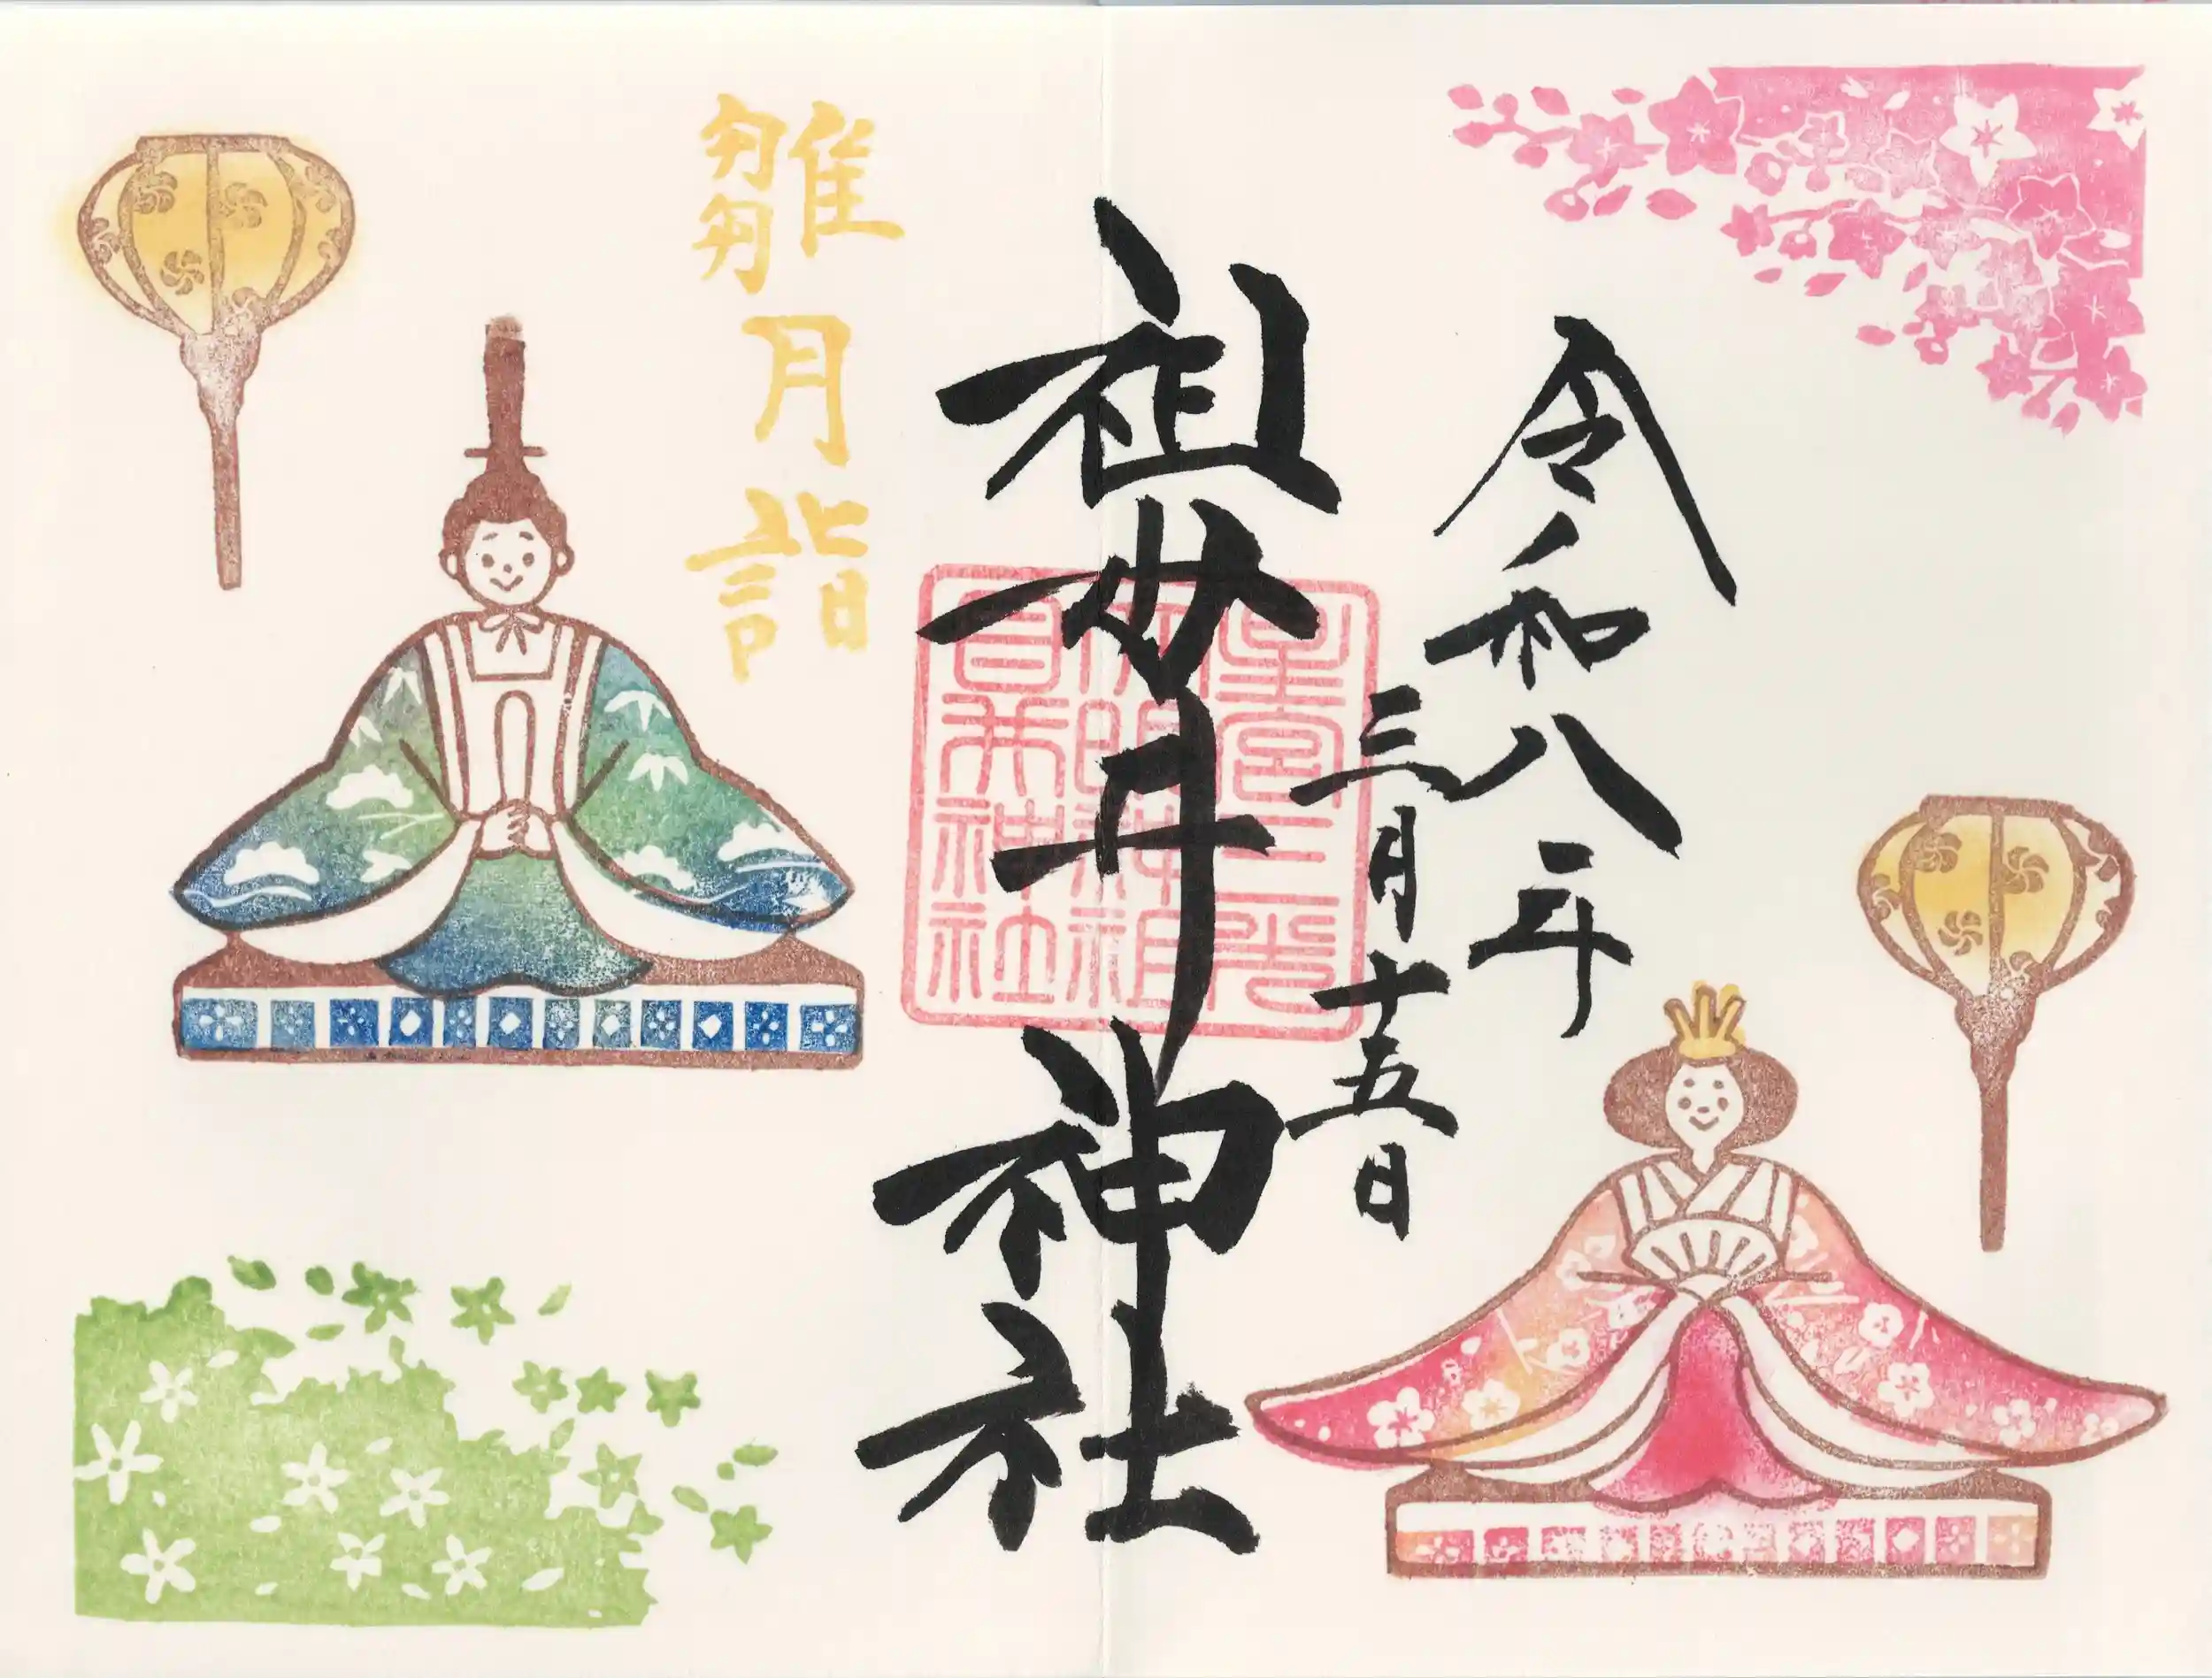 令和八年
三月十五日
祖母井神社
星宮三光
明神祖
母井神社
雛月詣